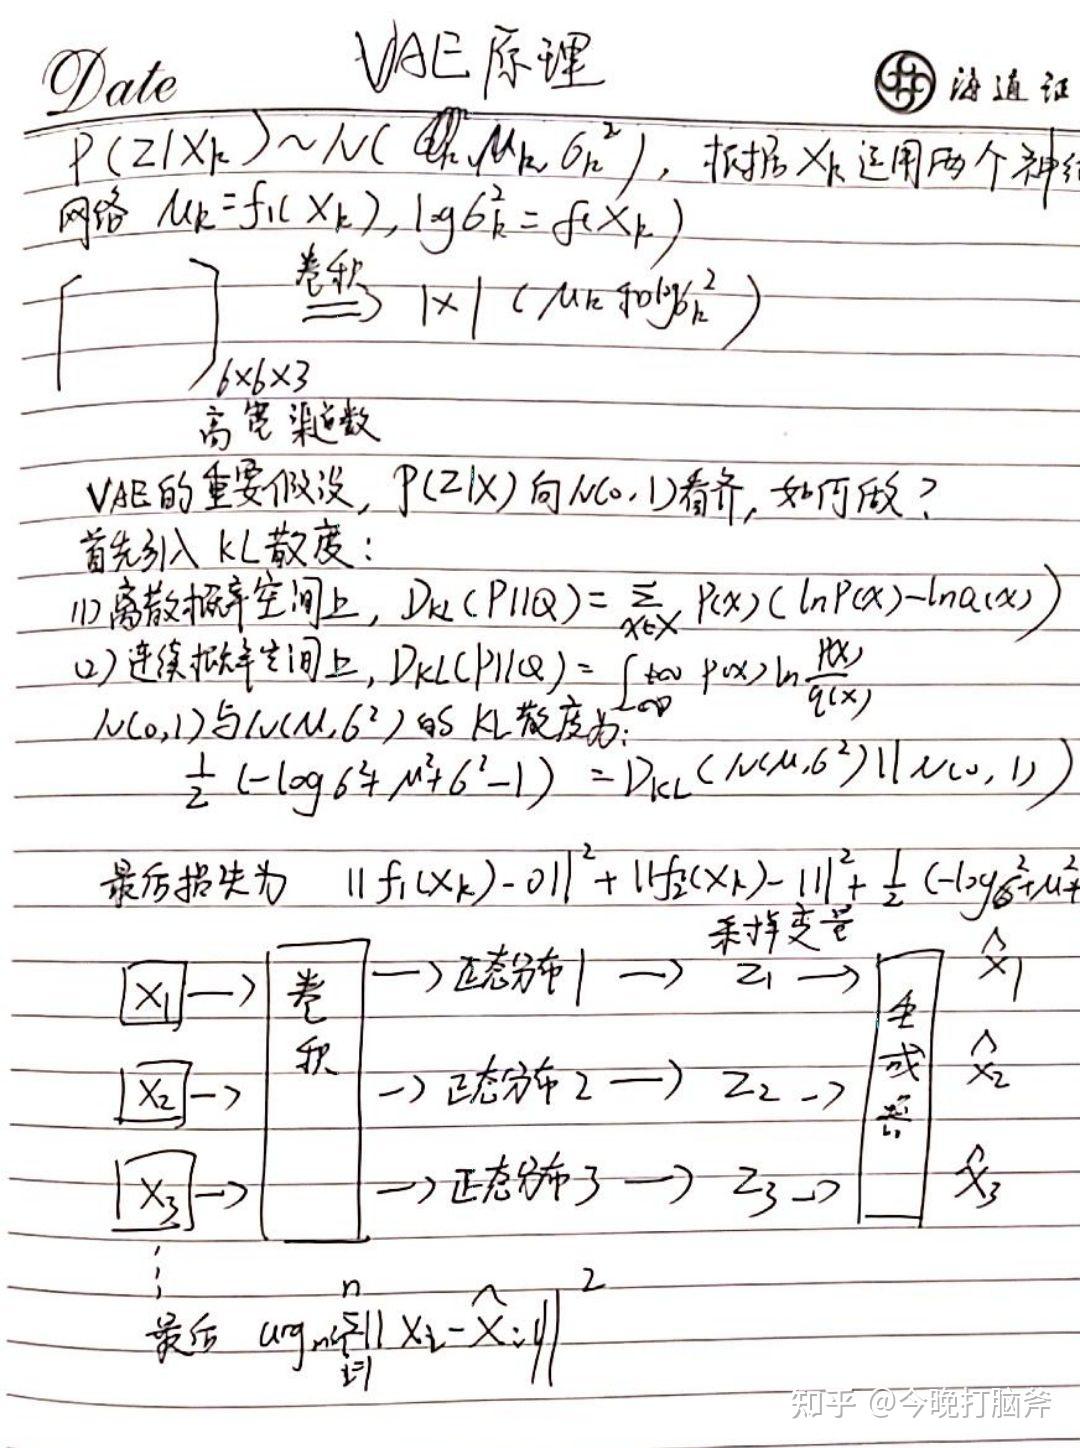 VAE原理
Date
海通证
P(Z|Xk)~N(μk,σk²), 根据Xk运用两个神经
网络 μk=f1(Xk), logσk²=f(Xk)
卷积
⇒ 1×1 (μk和logσk²)
6×6×3
高宽渠道数
VAE的重要假设, P(Z|X)向N(0,1)看齐, 如何做?
首先引入KL散度:
(1)离散概率空间上, DKL(P||Q)=Σx∈X P(x)(lnP(x)-lnQ(x))
(2)连续概率空间上, DKL(P||Q)=∫-∞+∞ p(x)ln p(x)/q(x)
N(0,1)与N(μ,σ²)的KL散度为:
1/2(-logσ²+μ²+σ²-1)=DKL(N(μ,σ²)||N(0,1))
最后损失为 ||f1(Xk)-0||²+||f2(Xk)-1||²+1/2(-logσ²+μ²+
采样变量
X1→ 卷积 →正态分布1→ Z1→ 生成器 X̂1
X2→ →正态分布2→ Z2→ X̂2
X3→ →正态分布3→ Z3→ X̂3
最后 argminΣi=1n||Xi-X̂i||²
知乎 @今晚打脑斧